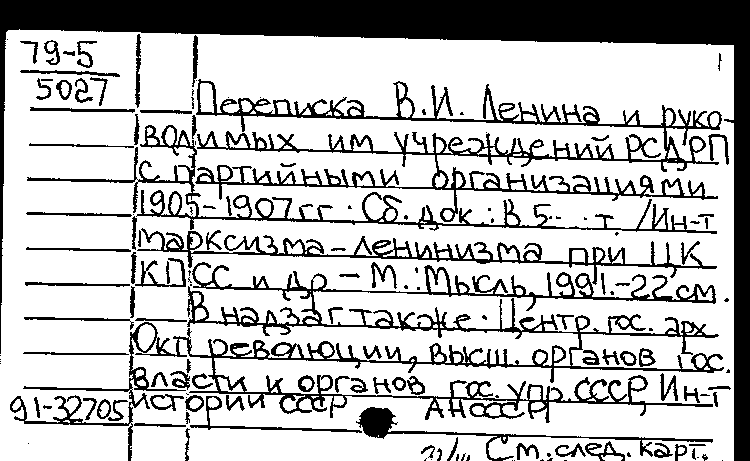 79-5
5027
1
Переписка В.И. Ленина и руко-
водимых им учреждений РСДРП
с партийными организациями
1905-1907 гг.: Сб. док.: В 5-. т. /Ин-т
марксизма-ленинизма при ЦК
КПСС и др - М.: Мысль, 1991.-22 см.
В надзаг. также: Центр. гос. арх
Окт революции, высш. органов гос.
власти и органов гос. упр. СССР, Ин-т
91-32705 истории СССР АН СССР
См. след. карт.